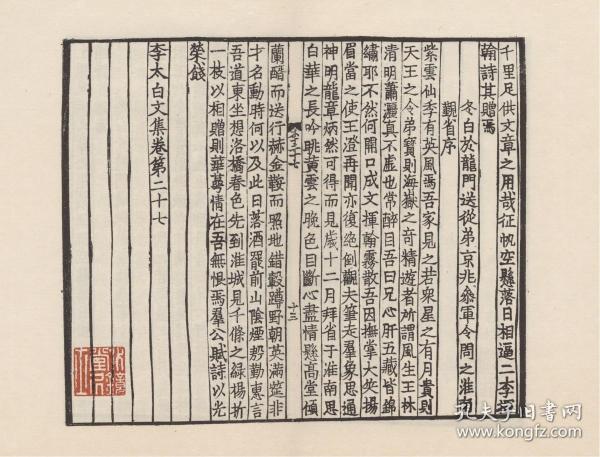 千里足供文章之用哉征帆空懸落日相逼二季揮
翰詩其贈焉
冬日於龍門送從弟京兆參軍令問之淮南
覲省序
紫雲仙季有英風焉吾家見之若衆星之有月貴則
天王之令弟寶則海嶽之奇精遊者所謂風生玉林
清明蕭灑真不虛也常醉目吾曰兄心肝五藏皆錦
繡耶不然何開口成文揮翰霧散吾因撫掌大笑揚
眉當之使王澄再聞亦復絶倒觀夫筆走羣象思通
神明龍章炳然可得而見歲十二月拜省于淮南思
白華之長吟眺黃雲之晚色目斷心盡情懸高堂傾
十三
蘭醑而送行赫金鞍而照地錯轂蹲野朝英滿筵非
才名動時何以及此日落酒罷前山陰煙殷勤惠言
吾道東坐想洛橋春色先到淮城見千條之緑楊折
一枝以相贈則華萼情在吾無恨焉羣公賦詩以光
榮餞
李太白文集卷第二十七
孔夫子旧书网
www.kongfz.com